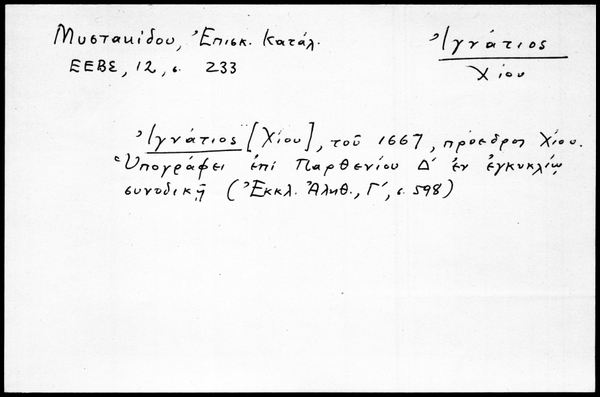 Μυστακίδου, Ἐπισκ. Κατάλ.
Ἰγνάτιος
Χίου
ΕΕΒΣ, 12, σ. 233
Ἰγνάτιος [Χίου], τοῦ 1667, πρόεδρος Χίου.
Ὑπογράφει ἐπί Παρθενίου Δ′ ἐν ἐγκυκλίῳ
συνοδικῇ (Ἐκκλ. Ἀληθ., Γ′, σ. 598)